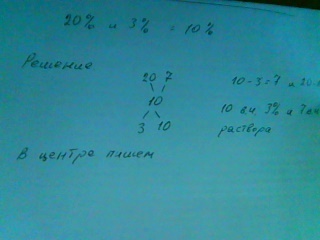 20% и 3% = 10%
Решение
20 7
10
3 10
10-3=7 и 20-
10 в.ч. 3% и 7
раствора
В центре пишем